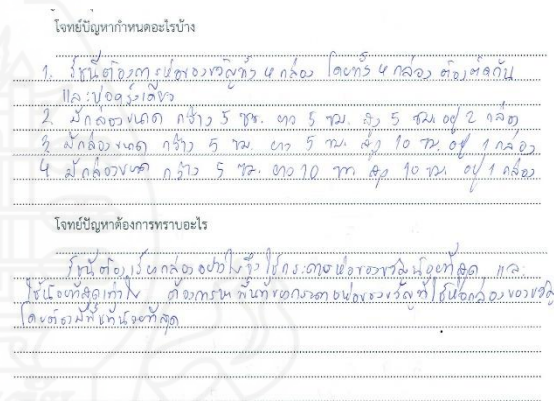 โจทย์ปัญหากำหนดอะไรบ้าง
1. รัชนีต้องการห่อของขวัญทั้ง 4 กล่อง โดยทั้ง 4 กล่อง ต้องติดกัน
และห่อครั้งเดียว
2. มีกล่องขนาด กว้าง 5 ซม. ยาว 5 ซม. สูง 5 ซม. อยู่ 2 กล่อง
3. มีกล่องขนาด กว้าง 5 ซม. ยาว 5 ซม. สูง 10 ซม. อยู่ 1 กล่อง
4. มีกล่องขนาด กว้าง 5 ซม. ยาว 10 ซม. สูง 10 ซม. อยู่ 1 กล่อง
โจทย์ปัญหาต้องการทราบอะไร
รัชนีต้องเรียงกล่องอย่างไรจึงใช้กระดาษห่อของขวัญน้อยที่สุด และ
ใช้น้อยที่สุดเท่าไร ต้องการหาพื้นที่ของกระดาษห่อของขวัญที่ใช้ห่อกล่องของขวัญ
โดยต้องมีพื้นที่น้อยที่สุด